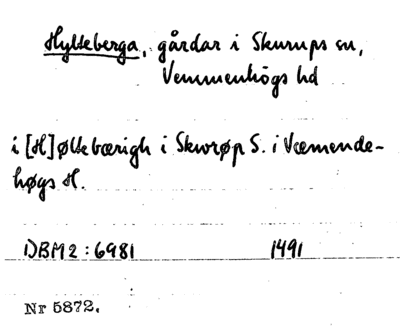 Hylteberga, gårdar i Skurups sn,
Vemmenhögs hd
i [H]øltebærigh i Skurøp S. i Væmende-
høgs H.
DBM2:6981 1491
Nr 5872.